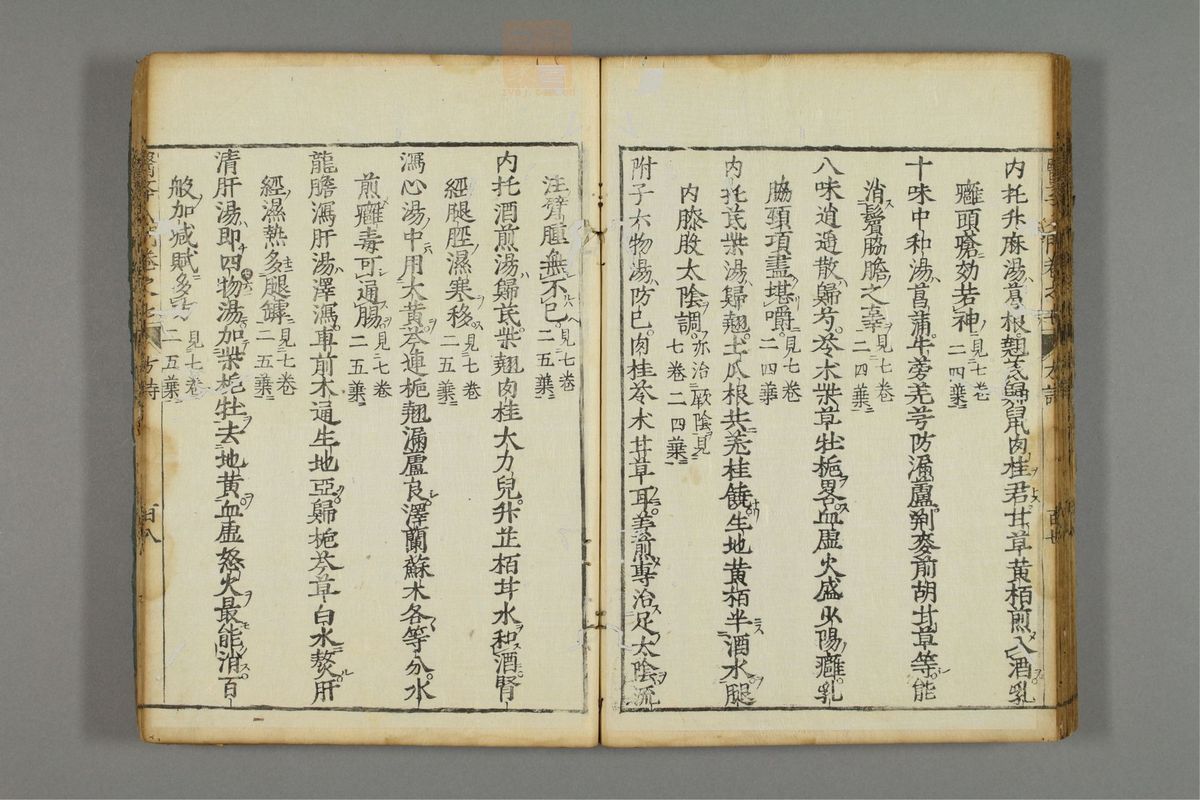 内托升麻湯葛根翹芪歸鼠肉桂君甘草黄栢煎入酒乳
癰頭瘡効若神見七巻二四葉
十味中和湯菖蒲牛蒡羌芎防漏蘆荆麥前胡甘草等能
消鬢脇膽之辜見七巻二四葉
八味逍遥散歸芍苓术柴草牡梔畧血虚火盛少陽癰乳
脇頸項盡堪嚼見七巻二四葉
内托芪柴湯歸翹土瓜根共羌桂饒生地黄栢半酒水腿
内膝股太陰調亦治厥陰見七巻二四葉
附子六物湯防已肉桂苓术甘草耳姜煎専治足太陰流
注臂腫無不已見七巻二五葉
内托酒煎湯歸芪柴翹肉桂大力兒升芷栢甘水和酒腎
經腿脛濕寒移見七巻二五葉
瀉心湯中用大黄芩連梔翹漏蘆良澤蘭蘇木各等分水
煎癰毒可通腸見七巻二五葉
龍膽瀉肝湯澤瀉車前木通生地亞歸梔芩草白水熬肝
經濕熱多腿罅見七巻二五葉
清肝湯即四物湯加柴梔牡去地黄血虚怒火最能消百
般加减賦多方見七巻二五葉
百八